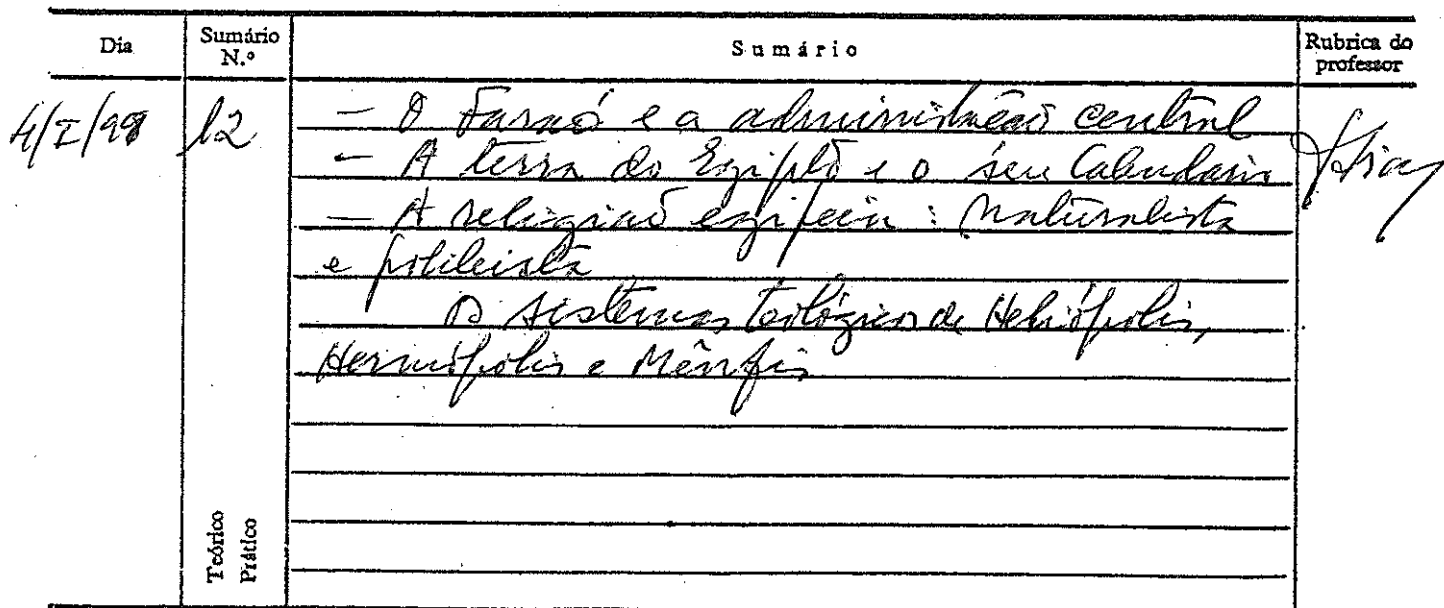 Dia Sumário N.º Sumário Rubrica do professor
4/I/99 12 - O Faraó e a administração central
- A terra do Egipto e o seu Calendário
- A religião egípcia: naturalista
e politeísta
Os sistemas teológicos de Heliópolis,
Hermópolis e Mênfis
Teórico
Prático